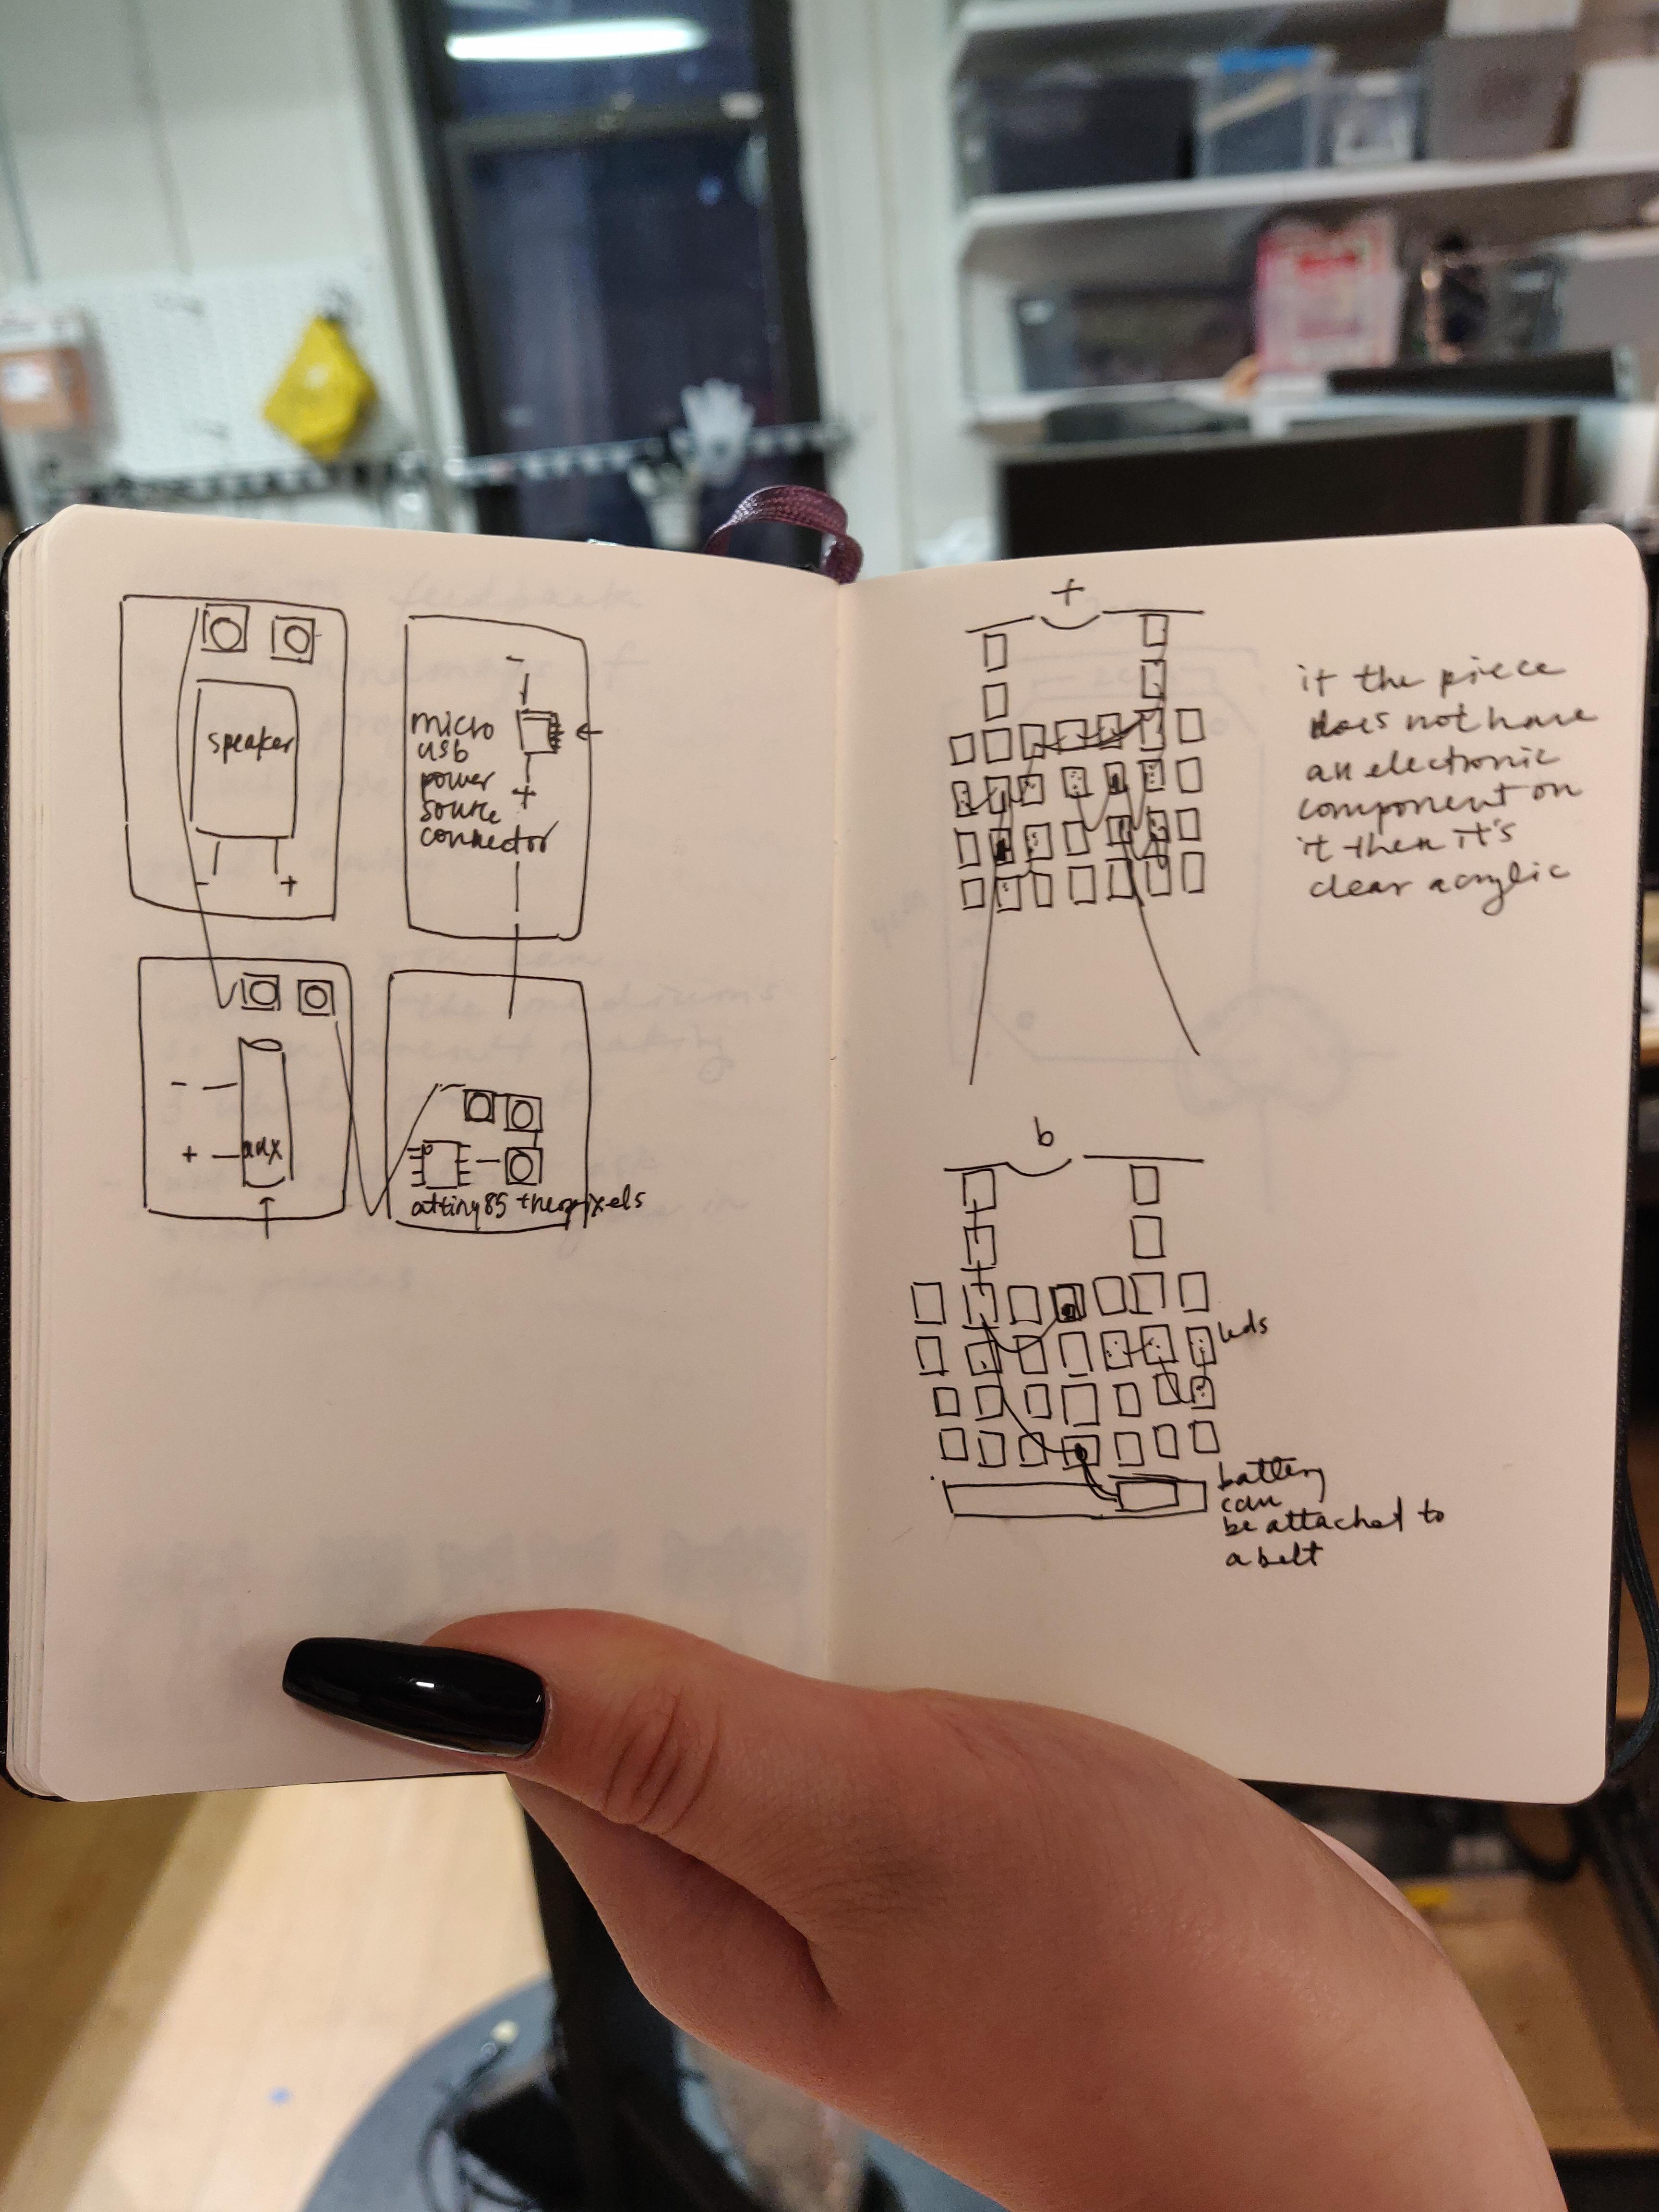 speaker
- +
-
micro
usb
power
source
connector
+
-
+ aux
attiny85 then pixels
f
if the piece
does not have
an electronic
component on
it then it's
clear acrylic
b
leds
battery
can
be attached to
a belt
feedback